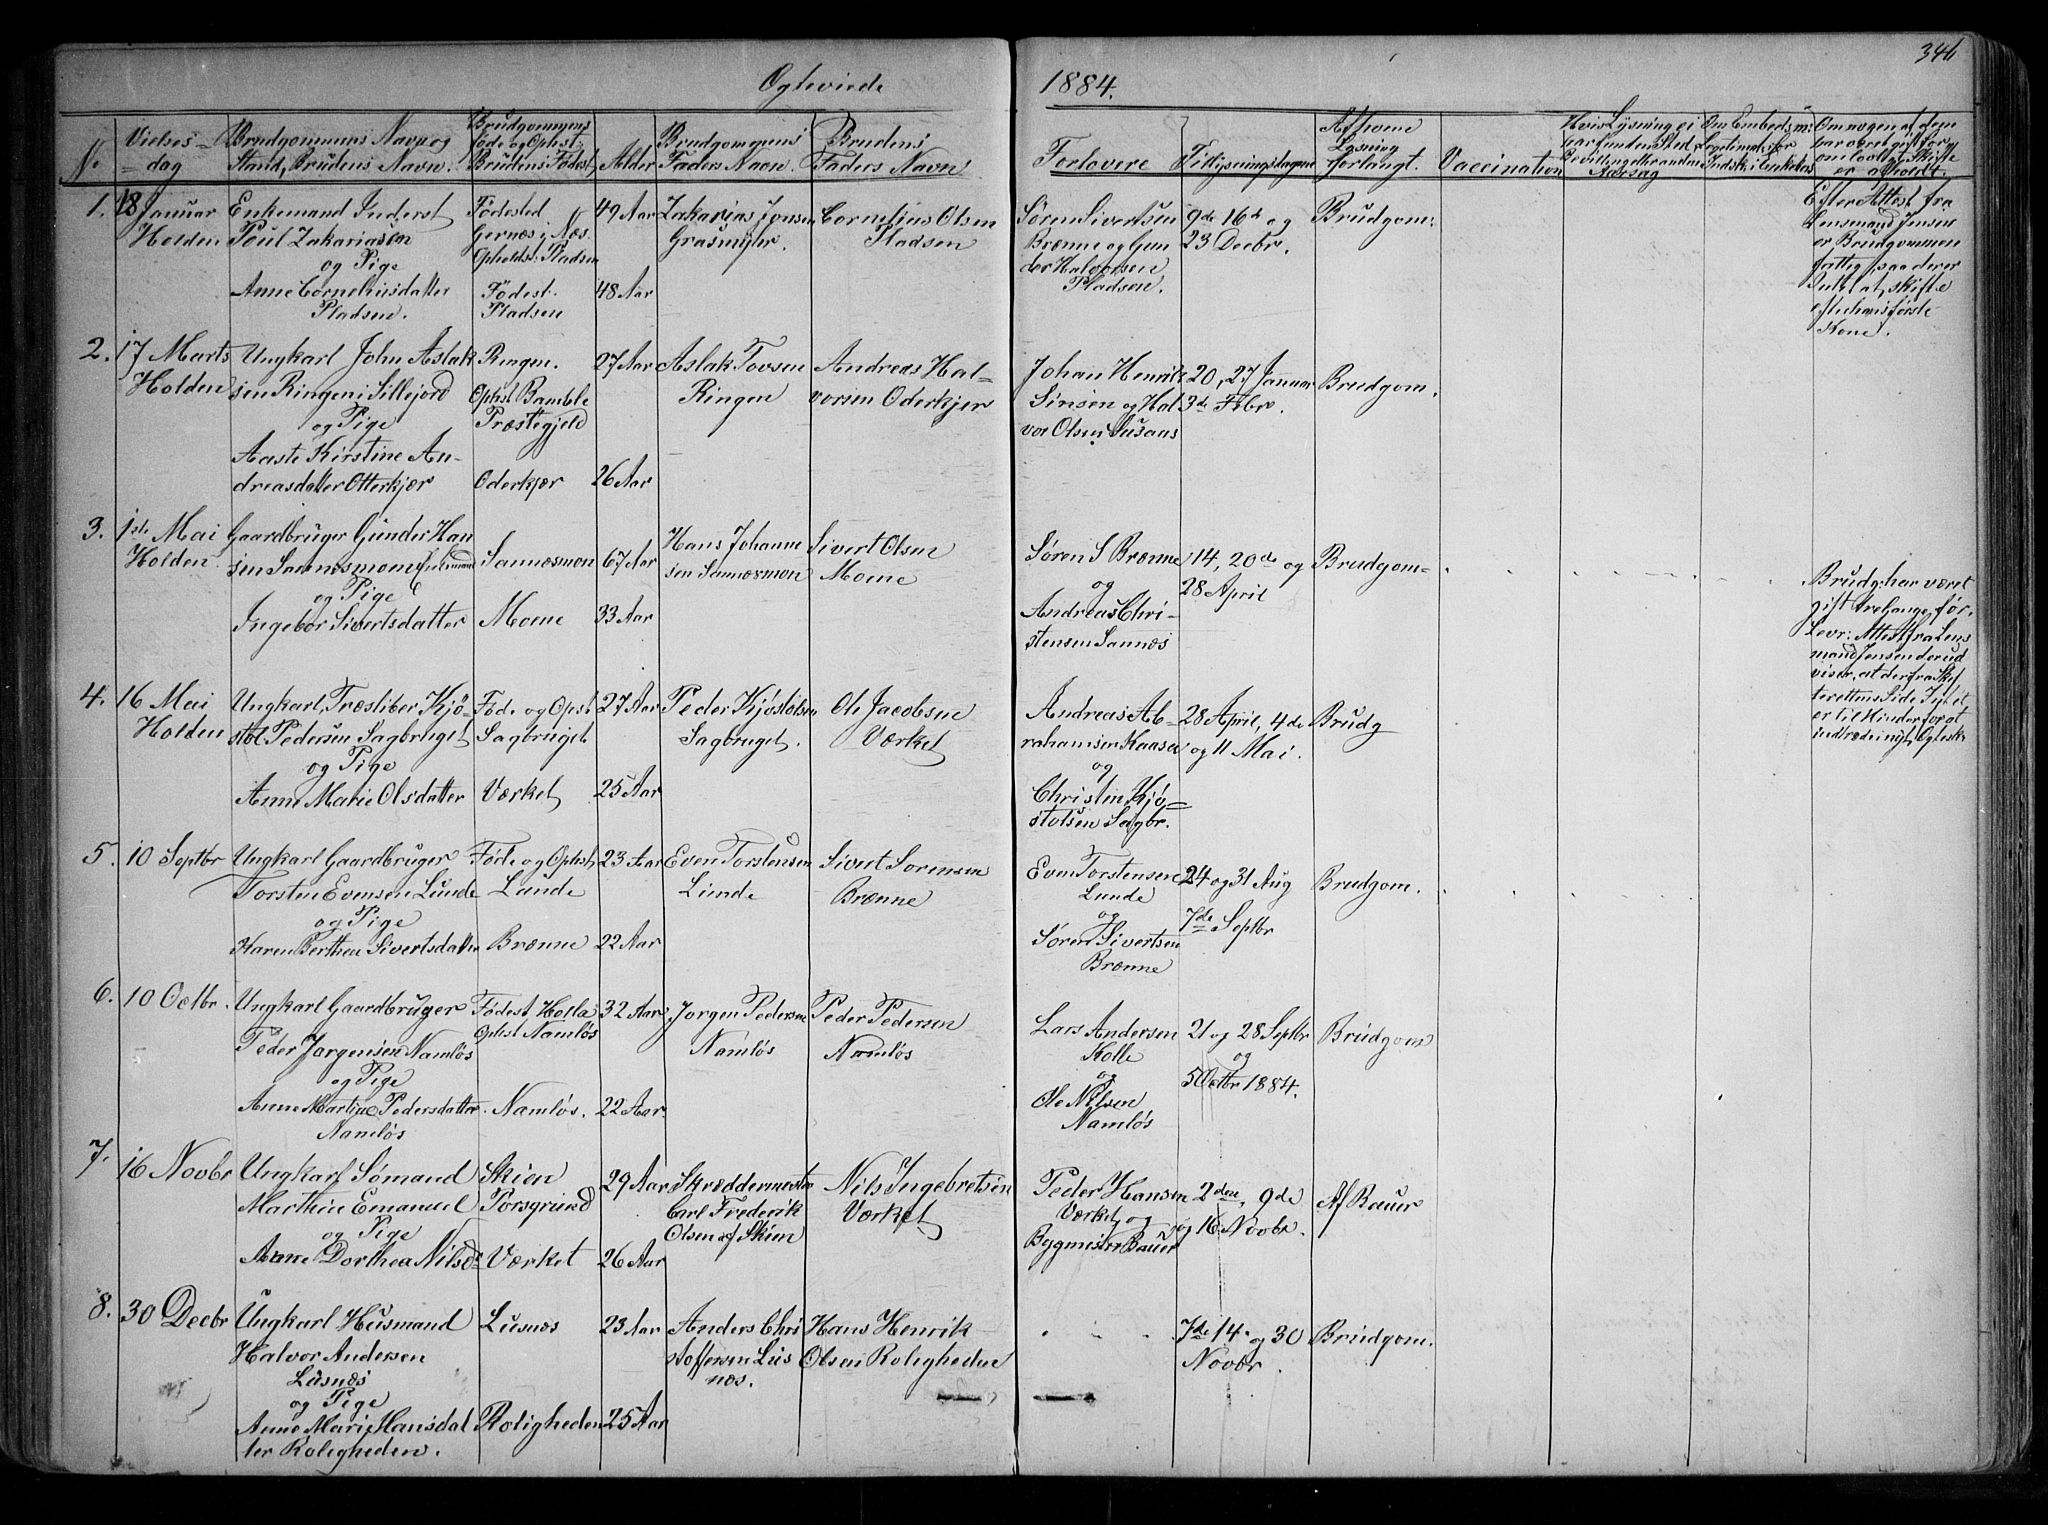 346
Ægteviede
1884.
N.
Vielses-
dag
Brudgommens Navn og
Stand, Brudens Navn.
Brudgommens
Føde og Ophst:
Brudens Fødest:
Alder
Brudgommens
Faders Navn.
Brudens
Faders Navn
Forlovere
Tillysningsdagene
Af hvem
Lysning
forlangt.
Vaccination
Hvis Lysning ei
har funden Sted
Bevillings
Aarsag
Om Embedsm:
Legitimat: for
Indsk: i Enkekas
Om nogen af dem
har været gift før og
om lovligt Skifte
er afholdt.
1.
18 Januar
Holden
Enkemand Inderst
Poul Zakariasen
og Pige
Anne Corneliusdatter
Pladsen.
Fødested
Gernæs i Næs.
Opholdst: Pladsen
Fødest:
Pladsen
49 Aar
48 Aar
Zakarias Jonsen
Grasmyhr.
Cornelius Olsen
Pladsen
Søren Sivertsen
Brænne og Gun
der Halvorsen
Pladsen.
9de 16de og
23 Decbr.
Brudgom:
Efter Attest fra
Lensmand Jensen
er Brudgommen
fattig, saa der er
Intet at skifte
efter hans første
Kone.
2.
17 Marts
Holden
Ungkarl John Aslak
sen Ringen i Sillejord
og Pige
Aaste Kirstine An-
dreasdatter Otterkjær
Ringen.
Ophst Bamble
Præstegjeld
Oderkjær
27 Aar
26 Aar
Aslak Tovsen
Ringen
Andreas Hal-
vorsen Oderkjer
Johan Henrik
Simsen og Hal
vor Olsen Susaas
20, 27 Januar
3de Febr.
Brudgom.
3.
1ste Mai
Holden
Gaardbruger Gunder Han
sen Sannæsmoen Enkemand
og Pige
Ingebor Sivertsdatter
Sannæsmoen
Moene
67 Aar
33 Aar
Hans Johanne
sen Sannæsmoen
Sivert Olsen
Moene
Søren S Brænne
og
Andreas Chri-
stensen Sannæs
14, 20de og
28 April
Brudgom
Brudg: har været
gift tre Gange før.
Levr: Attest fra Lens
mand Jensen der ud
viser, at der fra Skif
terettens Side Intet
er til Hinder for at
indtræde i nyt Ægtesk:
4.
16 Mai
Holden
Ungkarl, Træsliber Kjø-
stol Pedersen Sagbruget
og Pige
Anne Marie Olsdatter
Føde og Ophst
Sagbruget
Værket
27 Aar
25 Aar
Peder Kjøstolsen
Sagbruget.
Ole Jacobsen
Værket
Andreas Ab-
rahamsen Kaasa
og
Christen Kjø-
stolsen Sagbr.
28 April, 4de
og 11 Mai.
Brudg
5.
10 Septbr
Ungkarl Gaardbruger
Torsten Evensen Lunde
og Pige
Karen Berthea Sivertsdatter
Føde og Ophst,
Lunde
Brænne
23 Aar
22 Aar
Even Torstensen
Lunde
Sivert Sorensen
Brænne
Even Torstensen
Lunde
og
Søren Sivertsen
Brænne
24 og 31 Aug
7de Septbr
Brudgom.
6.
10 Octbr.
Ungkarl Gaardbruger
Peder Jorgensen Namløs
og Pige
Anne Martine Pedersdatter
Namløs
Fødest Holla
Ophst Namløs
Namløs.
32 Aar
22 Aar.
Jorgen Pedersen
Namløs
Peder Pedersen
Namløs
Lars Andersen
Kolle
og
Ole Nilsen
Namløs
21 og 28 Septbr
og
5 Octbr 1884.
Brudgom
7.
16 Novbr
Ungkarl Sømand
Marthin Emanuel
og Pige
Anne Dorthea Nilsd:
Skien
Porsgrund
Værket
29 Aar
26 Aar
Skræddermester
Carl Frederik
Olsen af Skien
Nils Ingebretsen
Værket
Peder Hansen
Værket og
Bygmester Bauer
2den, 9de
og 16 Novbr.
Af Bauer
8.
30 Decbr
Ungkarl Husmand
Halvor Andersen
Lusnæs
og Pige
Anne Marie Hansdat
ter Roligheden.
Lusnæs
Roligheden
23 Aar
25 Aar
Anders Chri
stoffersen Lus
næs.
Hans Henrik
Olsen Roligheden
7de 14. og 30
Novbr.
Brudgom.